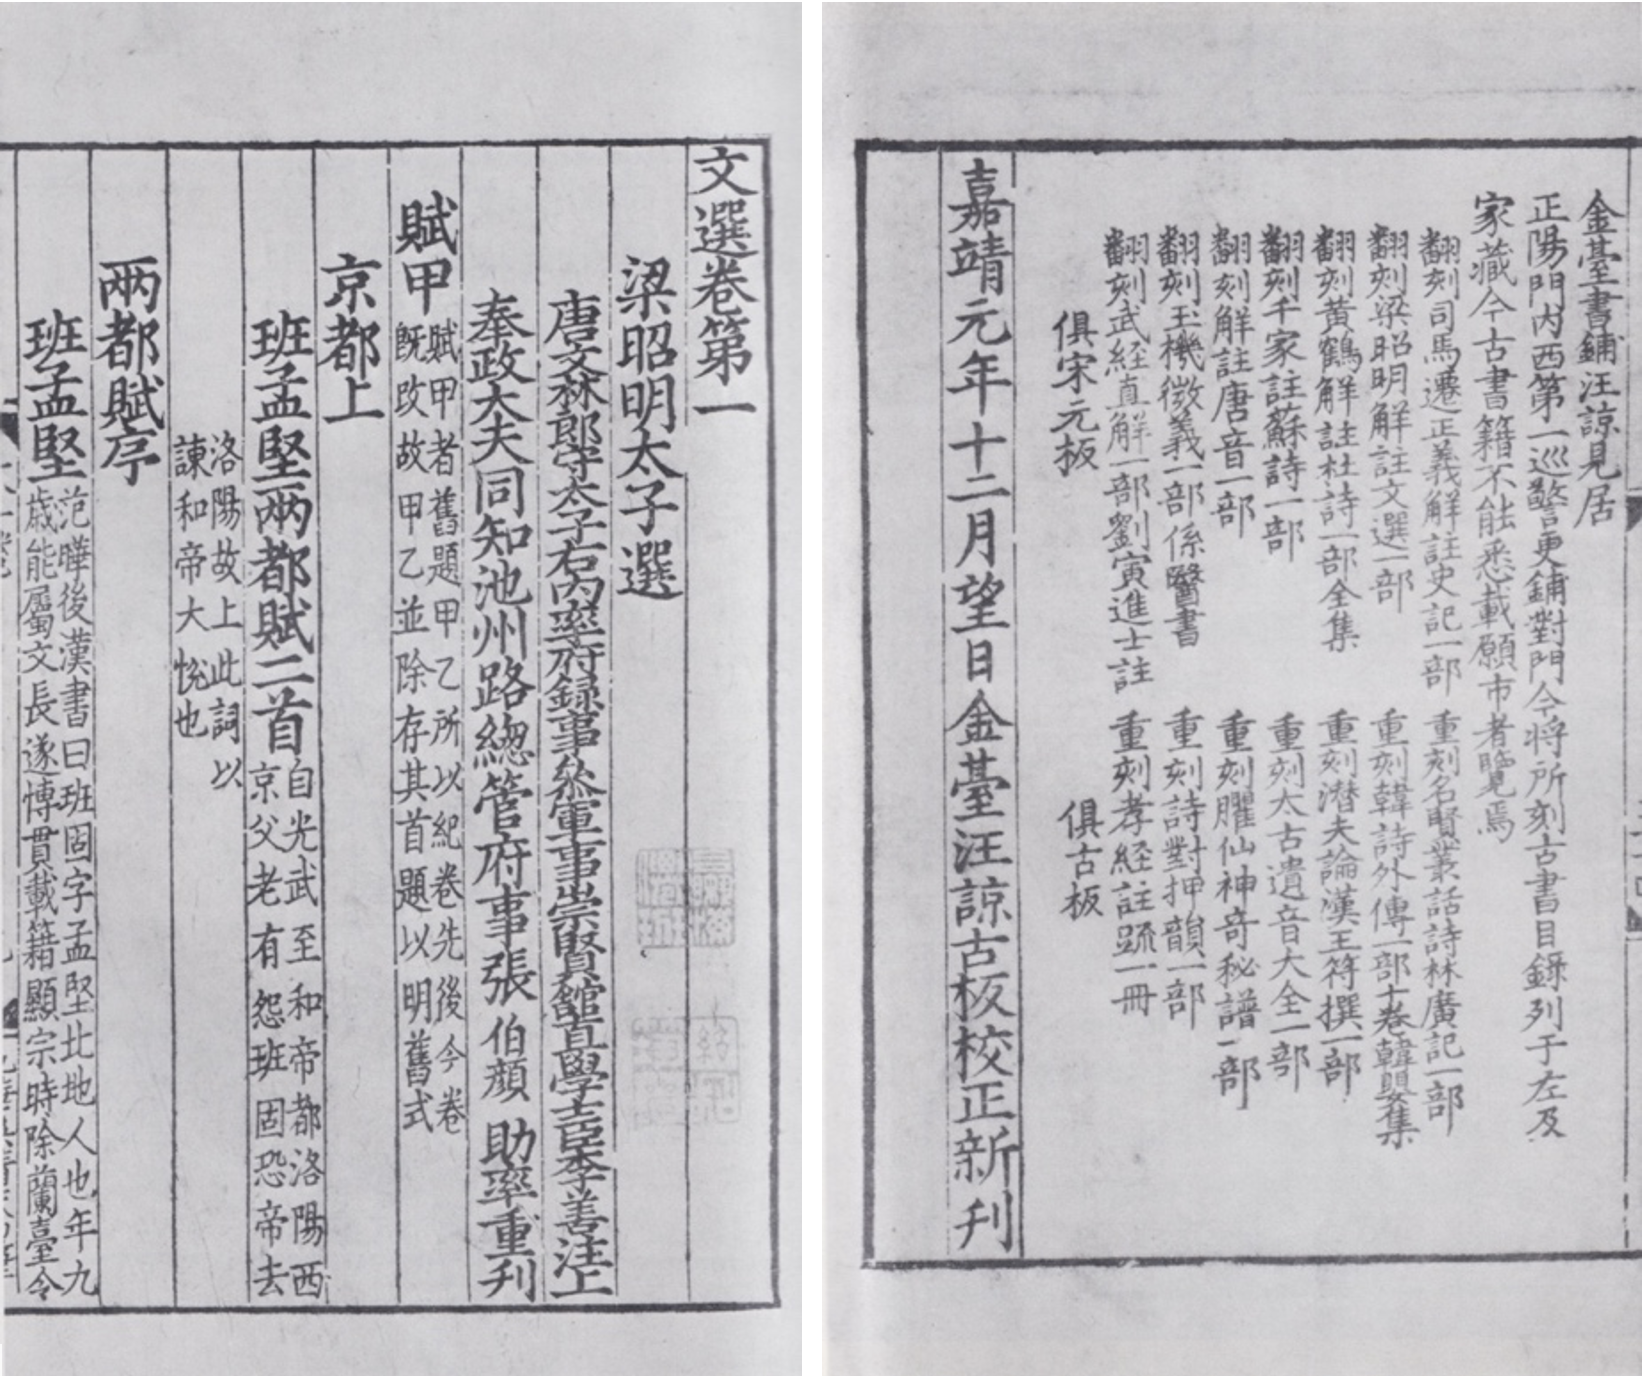 文選卷第一
梁昭明太子選
唐文林郎守太子右內率府録事叅軍事崇賢館直學士臣李善注上
奉政大夫同知池州路緫管府事張伯顔助率重刋
賦甲
賦甲者舊題甲乙所以紀卷先後今卷
旣改故甲乙並除存其首題以明舊式
京都上
班孟堅兩都賦二首
自光武至和帝都洛陽西
京父老有怨班固恐帝去
洛陽故上此詞以
諫和帝大恱也
兩都賦序
班孟堅
范曄後漢書曰班固字孟堅北地人也年九
歲能屬文長遂博貫載籍顯宗時除蘭臺令
金臺書鋪汪諒見居
正陽門內西第一巡警更鋪對門今將所刻古書目錄列于左及
家藏今古書籍不能悉載願市者覽焉
翻刻司馬遷正義解註史記一部
重刻名賢叢話詩林廣記一部
翻刻梁昭明解註文選一部
重刻韓詩外傳一部十卷韓嬰集
翻刻黃鶴解註杜詩一部全集
重刻潛夫論漢王符撰一部
翻刻千家註蘇詩一部
重刻太古遺音大全一部
翻刻解註唐音一部
重刻臞仙神奇秘譜一部
翻刻玉機微義一部係醫書
重刻詩對押韻一部
翻刻武經直解一部劉寅進士註
重刻孝經註疏一冊
俱宋元板
俱古板
嘉靖元年十二月望日金臺汪諒古板校正新刋